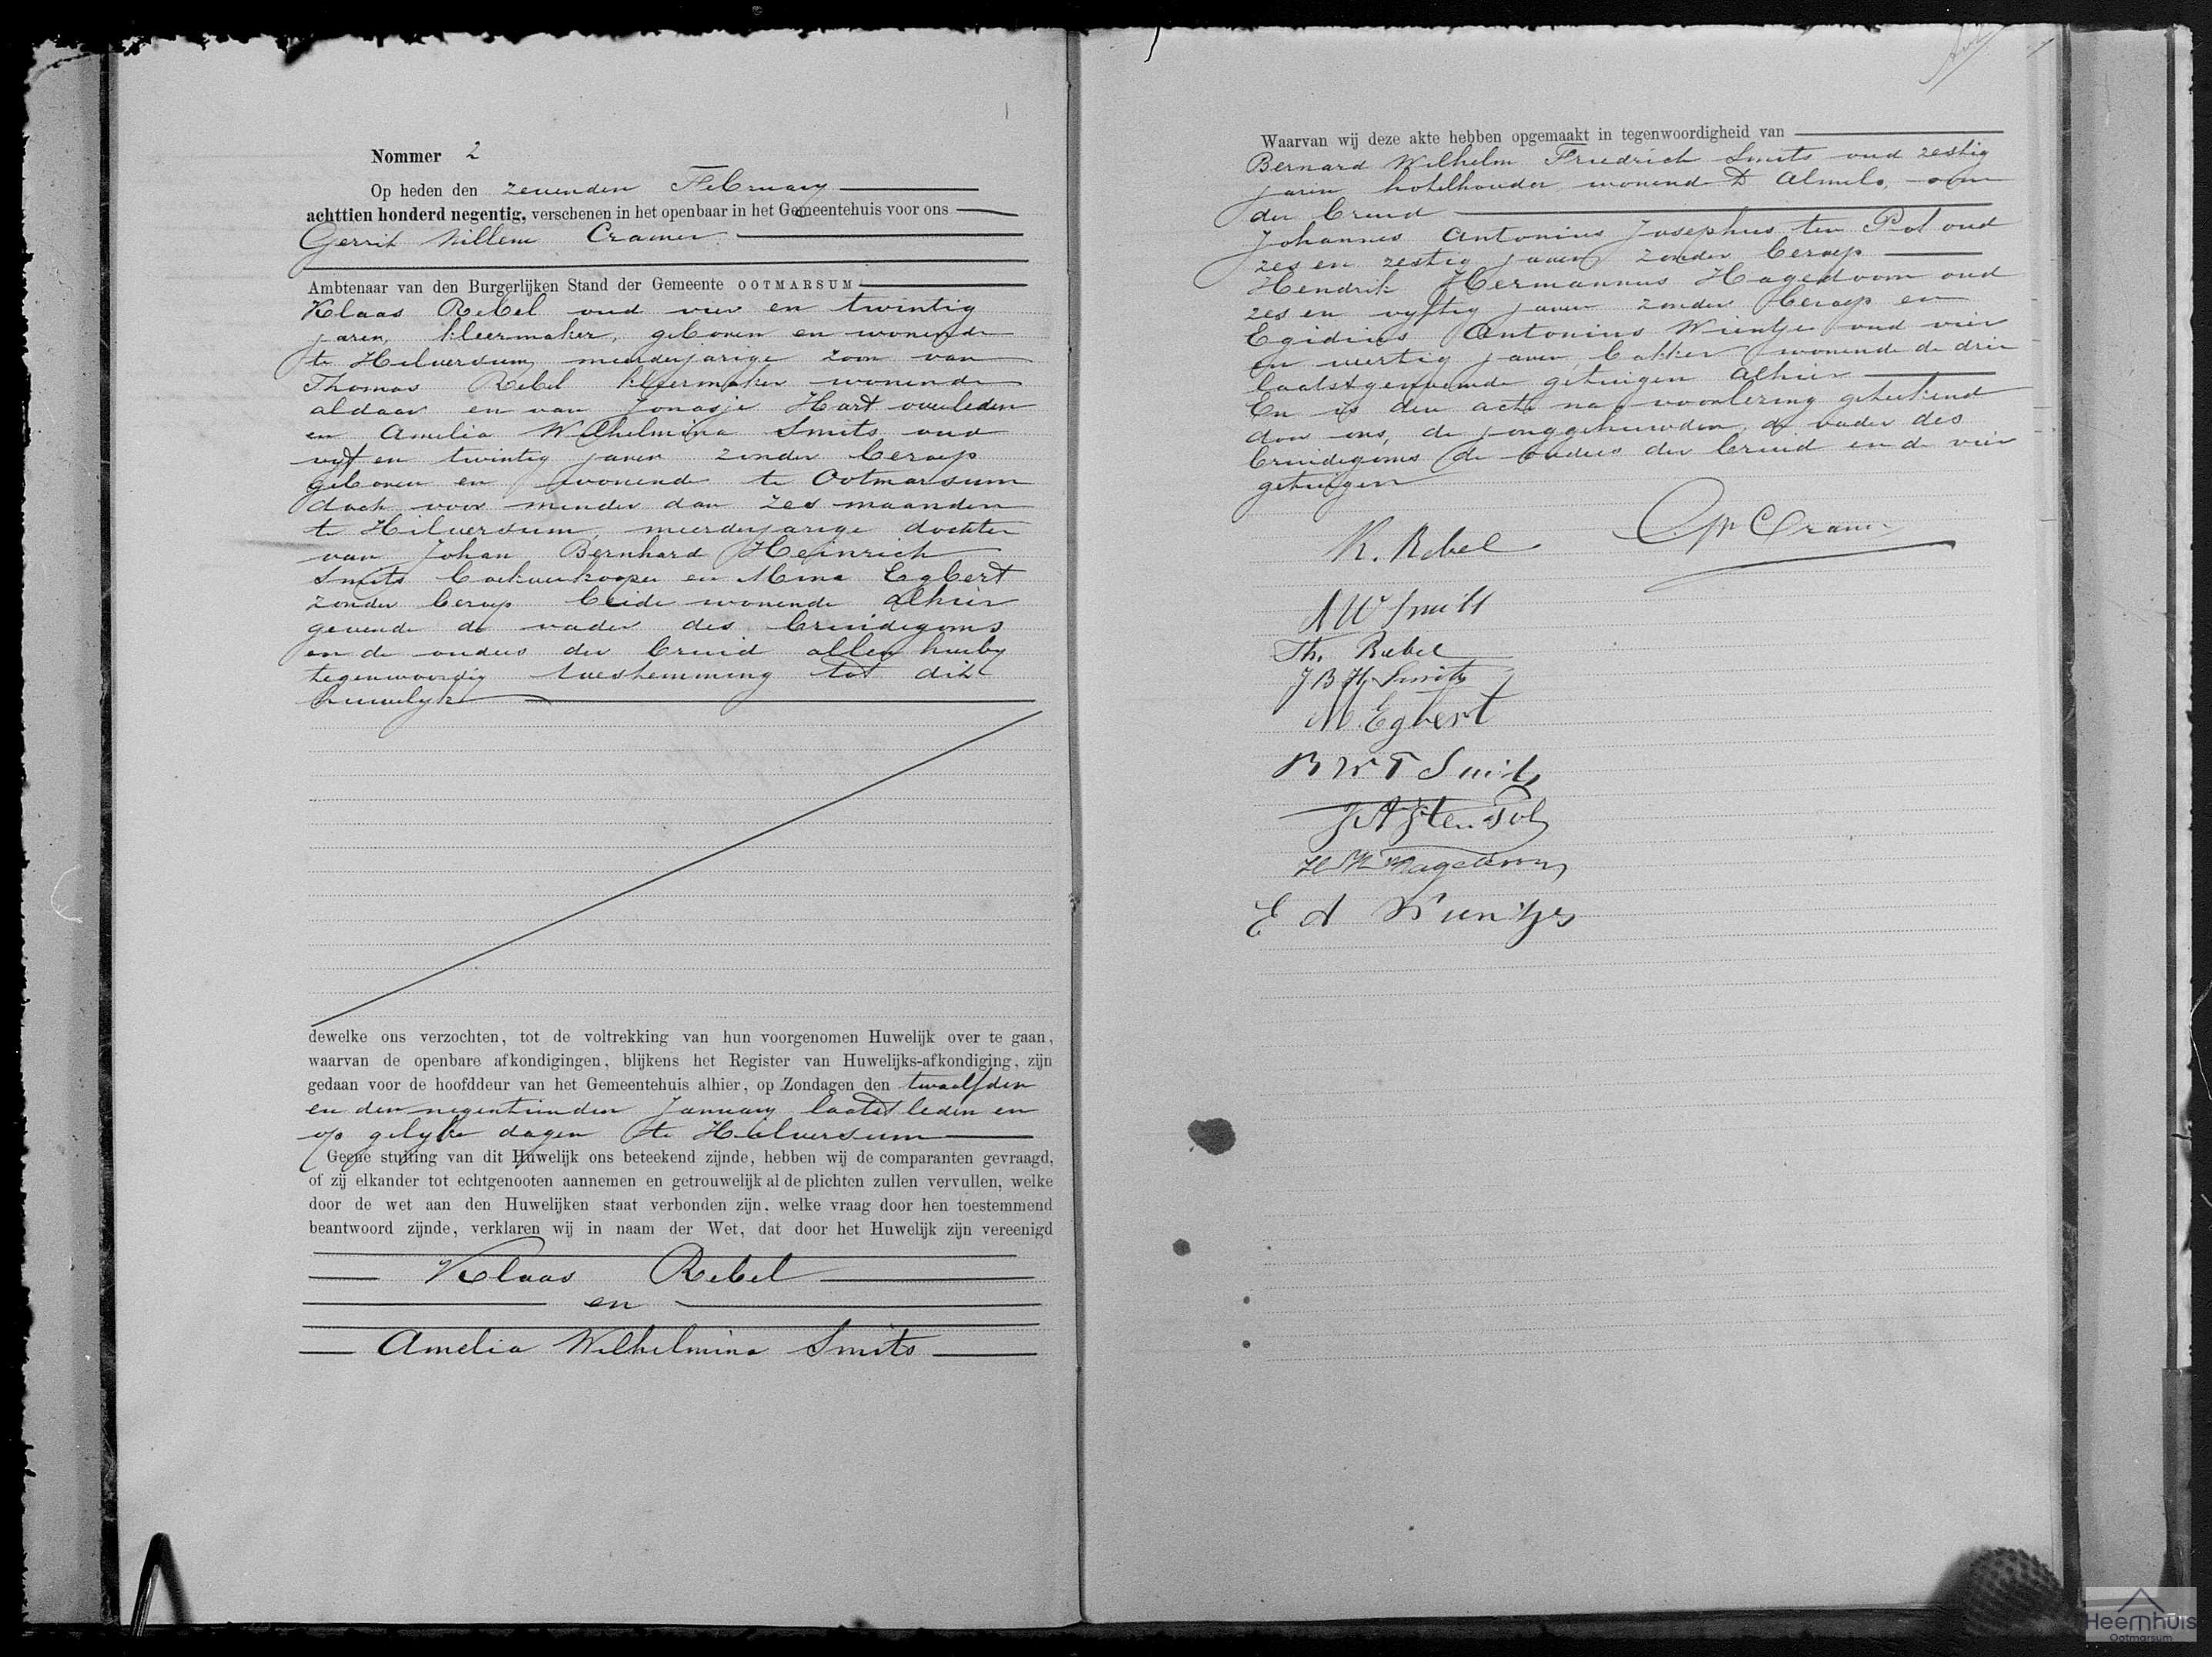 Nommer 2
Op heden den zevenden February
achttien honderd negentig, verschenen in het openbaar in het Gemeentehuis voor ons
Gerrit Willem Cramer
Ambtenaar van den Burgerlijken Stand der Gemeente OOTMARSUM
Klaas Rebel oud vier en twintig
jaren, kleermaker, geboren en wonende
te Hilversum, meerderjarige zoon van
Thomas Rebel kleermaker wonende
aldaar en van Jonasje Hart overleden
en Amelia Wilhelmina Smits oud
vyf en twintig jaren zonder beroep
geboren en wonende te Ootmarsum
doch voor minder dan zes maanden
te Hilversum, meerderjarige dochter
van Johan Bernhard Heinrich
Smits boekverkooper en Mina Egbert
zonder beroep beide wonende alhier
gevende de vader des bruidegoms
en de ouders der bruid allen hierby
tegenwoordig toestemming tot dit
huwelyk
dewelke ons verzochten, tot de voltrekking van hun voorgenomen Huwelijk over te gaan,
waarvan de openbare afkondigingen, blijkens het Register van Huwelijks-afkondiging, zijn
gedaan voor de hoofddeur van het Gemeentehuis alhier, op Zondagen den twaalfden
en den negentienden January laatstleden en
op gelyke dagen te Hilversum
Geene stuiting van dit Huwelijk ons beteekend zijnde, hebben wij de comparanten gevraagd,
of zij elkander tot echtgenooten aannemen en getrouwelijk al de plichten zullen vervullen, welke
door de wet aan den Huwelijken staat verbonden zijn, welke vraag door hen toestemmend
beantwoord zijnde, verklaren wij in naam der Wet, dat door het Huwelijk zijn vereenigd
Klaas Rebel
en
Amelia Wilhelmina Smits
Waarvan wij deze akte hebben opgemaakt in tegenwoordigheid van
Bernard Wilhelm Friedrich Smits oud zestig
jaren hotelhouder wonende te Almelo, oom
der bruid
Johannes Antonius Josephus ten Pol oud
zes en zestig jaren zonder beroep
Hendrik Hermannus Hagedoorn oud
zes en vyftig jaren zonder beroep en
Egidius Antonius Wientjes oud vier
en veertig jaren, bakker wonende de drie
laatstgenoemde getuigen alhier
En is deze acte na voorlezing geteekend
door ons, de jonggehuwden, de vader des
bruidegoms de ouders der bruid en de vier
getuigen
K. Rebel GW Cramer
A W Smits
Th. Rebel
J B H Smits
M. Egbert
B W F Smits
J A J ten Pol
H H Hagedoorn
E A Wientjes
Heemhuis
Ootmarsum